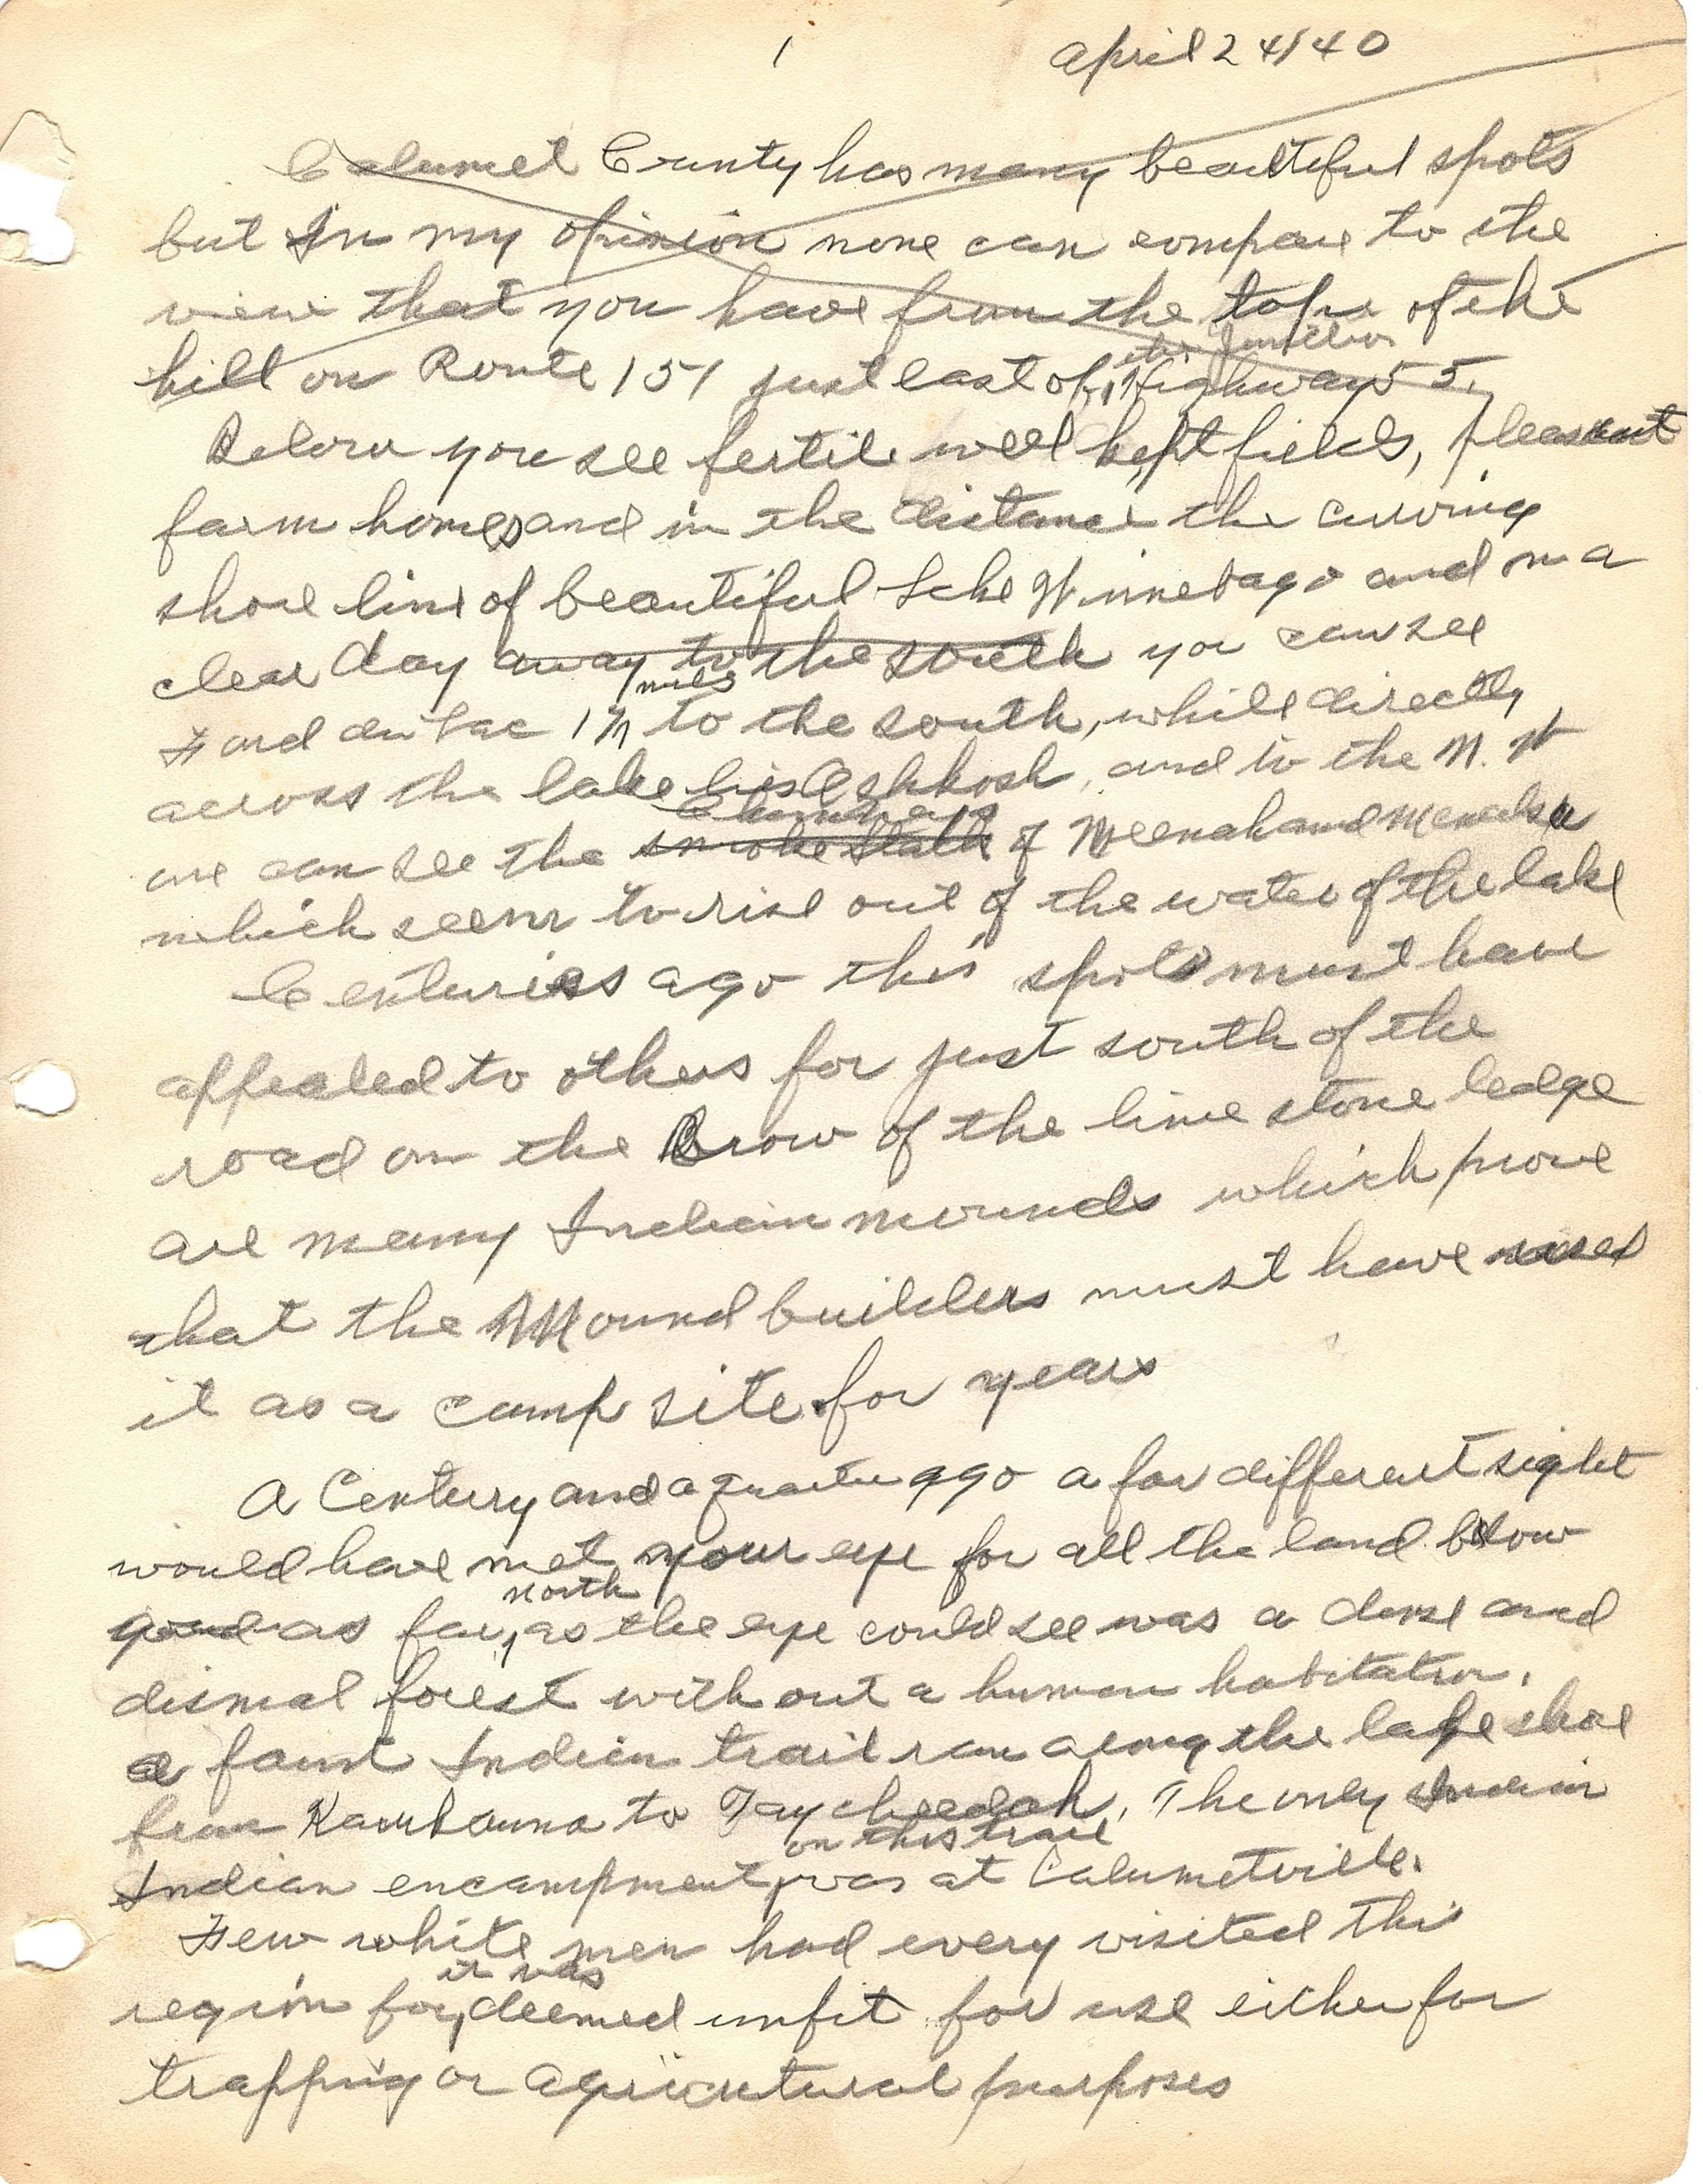 1 April 24/40
Calumet County has many beautiful spots
but In my opinion none can compare to the
view that you have from the top of the
the Junction
hill on Route 151 just east of Highway 55.
Below you see fertile well kept fields, pleasant
farm homes and in the distance the curving
shore line of beautiful Lake Winnebago and on a
clear day away to the south you can see
miles
Fond du Lac 17 to the south, while directly
across the lake lies Oshkosh, and to the N. W
Chimneys
we can see the smoke stalk of Neenah and Menasha
which seem to rise out of the water of the lake
Centuries ago this spot must have
appealed to others for just south of the
road on the Brow of the lime stone ledge
are many Indian mounds which prove
that the Mound builders must have used
it as a camp site for years
A Century and a quarter ago a far different sight
would have met your eye for all the land below
north
and as far as the eye could see was a dense and
dismal forest with out a human habitation.
a faint Indian trail ran along the lake shore
from Kaukauna to Taycheedah. The only Indian
on this trail
Indian encampment was at Calumetville.
Few white men had every visited this
it was
region for deemed unfit for use either for
trapping or agricultural purposes